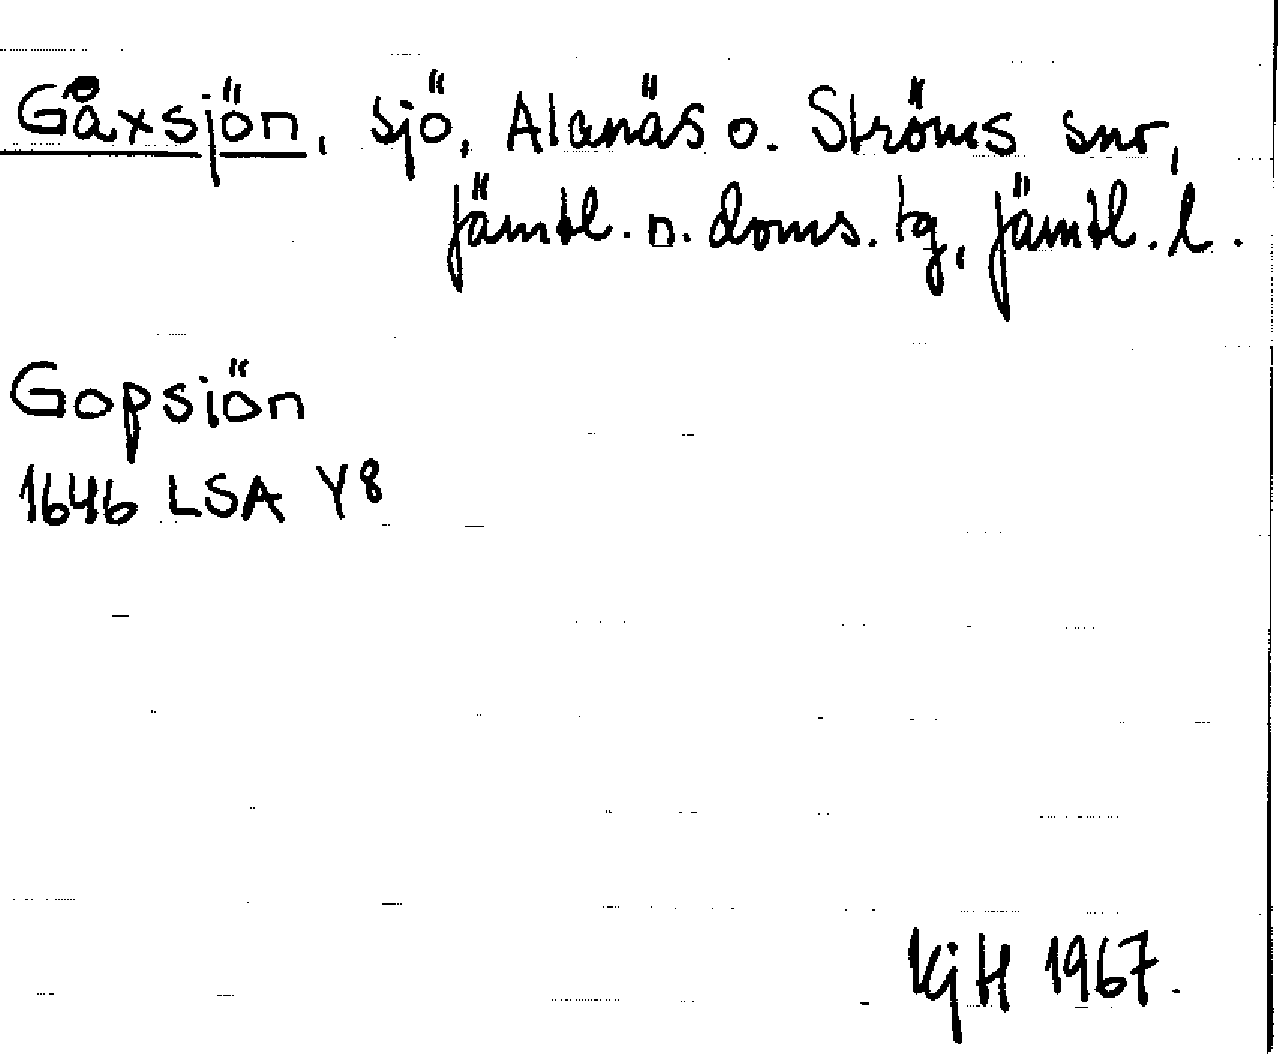 Gåxsjön, sjö, Alanäs o. Ströms snr,
Jämtl. n. doms. tg, Jämtl. l.
Gopsiön
1646 LSA Y8
KjH 1967.